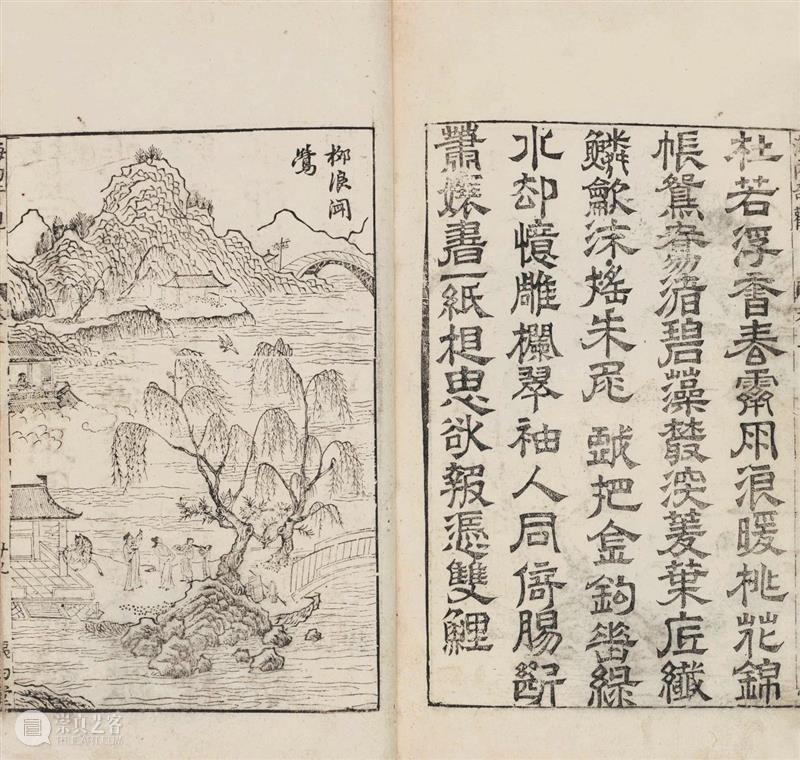 杜若浮香春霽雨浪暖桃花錦
帳鴛碧藻叢深菱葉底纖
鱗歙沫搖朱尾 戲把金鉤番綠
水却憶雕欄翠袖人同倚腸斷
蕭孃書一紙相思欲報憑雙鯉
柳浪聞
鶯
崇真艺客